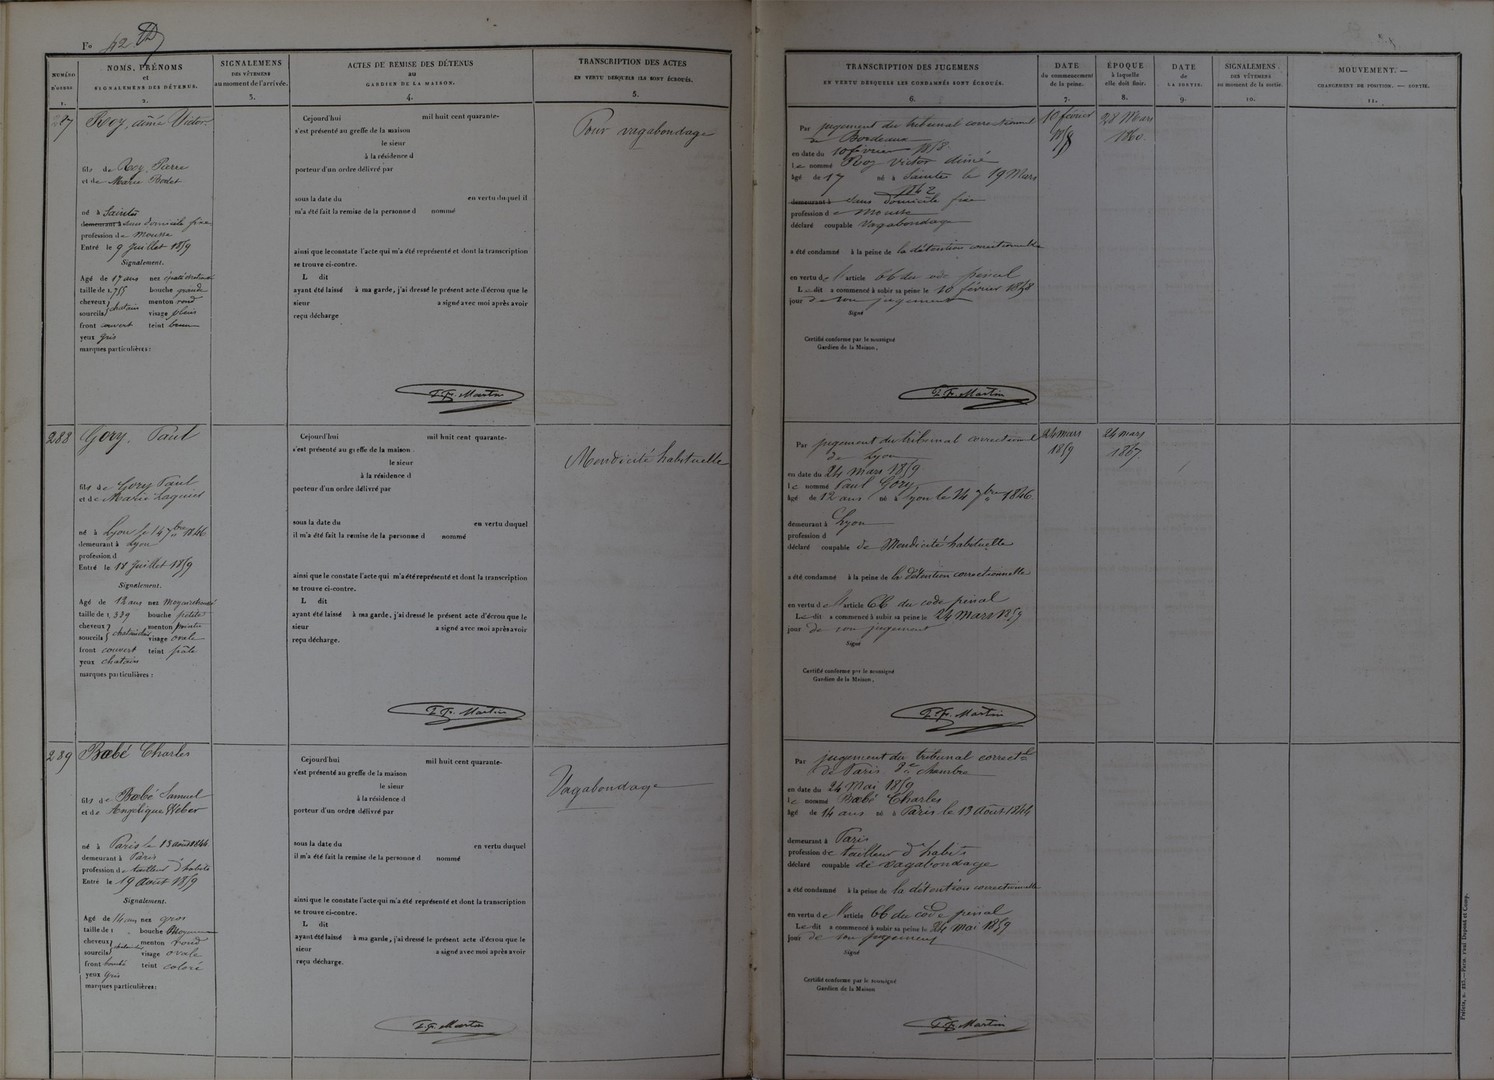 Fo 42
NUMÉRO D'ORDRE 1.
NOMS, PRÉNOMS et SIGNALEMENS DES DÉTENUS. 2.
SIGNALEMENS DES VÊTEMENS au moment de l'arrivée. 3.
ACTES DE REMISE DES DÉTENUS AU GARDIEN DE LA MAISON. 4.
TRANSCRIPTION DES ACTES EN VERTU DESQUELS ILS SONT ÉCROUÉS. 5.
TRANSCRIPTION DES JUGEMENS EN VERTU DESQUELS LES CONDAMNÉS SONT ÉCROUÉS. 6.
DATE du commencement de la peine. 7.
ÉPOQUE à laquelle elle doit finir. 8.
DATE de LA SORTIE. 9.
SIGNALEMENS DES VÊTEMENS au moment de la sortie. 10.
MOUVEMENT. — CHANGEMENT DE POSITION. — SORTIE. 11.
287
Roy, dimé Victor
fils de Roy, Pierre
et de Marie Bodet
né à Saintes
demeurant à sans domicile fixe
profession de Mousse
Entré le 9 Juillet 1859
Signalement.
Agé de 17 ans nez
taille de 1,755 bouche grande
cheveux menton rond
sourcils chatain visage plein
front couvert teint brun
yeux gris
marques particulières :
Cejourd'hui mil huit cent quarante-
s'est présenté au greffe de la maison
le sieur
à la résidence d
porteur d'un ordre délivré par
sous la date du en vertu duquel il
m'a été fait la remise de la personne d nommé
ainsi que le constate l'acte qui m'a été représenté et dont la transcription
se trouve ci-contre.
L dit
ayant été laissé à ma garde, j'ai dressé le présent acte d'écrou que le
sieur a signé avec moi après avoir
reçu décharge
Martin
Pour vagabondage
Par jugement du tribunal correctionnel
de Bordeaux
en date du 10 février 1858
le nommé Roy Victor dimé
âgé de 17 né à Saintes le 19 Mars
1842
demeurant à Sans domicile fixe
profession de Mousse
déclaré coupable Vagabondage
a été condamné à la peine de la détention correctionnelle
en vertu de l'article 66 du code pénal
Le dit a commencé à subir sa peine le 10 février 1858
jour de son jugement
Signé
Certifié conforme par le soussigné
Gardien de la Maison.
Martin
10 février
1858
28 Mars
1860
288
Gory, Paul
fils de Gory Paul
et de Marie
né à Lyon le 14 7bre 1846
demeurant à Lyon
profession d
Entré le 18 Juillet 1859
Signalement.
Agé de 12 ans nez Moyen
taille de 1 339 bouche petite
cheveux menton pointu
sourcils visage ovale
front couvert teint pâle
yeux chatain
marques particulières :
Cejourd'hui mil huit cent quarante-
s'est présenté au greffe de la maison
le sieur
à la résidence d
porteur d'un ordre délivré par
sous la date du en vertu duquel
il m'a été fait la remise de la personne d nommé
ainsi que le constate l'acte qui m'a été représenté et dont la transcription
se trouve ci-contre.
L dit
ayant été laissé à ma garde, j'ai dressé le présent acte d'écrou que le
sieur a signé avec moi après avoir
reçu décharge.
Martin
Mendicité habituelle
Par jugement du tribunal correctionnel
de Lyon
en date du 24 Mars 1859
le nommé Paul Gory
âgé de 12 ans né à Lyon le 14 7bre 1846
demeurant à Lyon
profession d
déclaré coupable de Mendicité habituelle
a été condamné à la peine de la détention correctionnelle
en vertu de l'article 66 du code pénal
Le dit a commencé à subir sa peine le 24 Mars 1859
jour de son jugement
Signé
Certifié conforme par le soussigné
Gardien de la Maison.
Martin
24 mars
1859
24 mars
1867
289
Bœbé Charles
fils de Bœbé Samuel
et de Angélique Weber
né à Paris le 13 août 1844
demeurant à Paris
profession de tailleur d'habits
Entré le 19 Août 1859
Signalement.
Agé de 14 ans nez gros
taille de 1 bouche Moyenne
cheveux menton rond
sourcils visage ovale
front teint coloré
yeux gris
marques particulières :
Cejourd'hui mil huit cent quarante-
s'est présenté au greffe de la maison
le sieur
à la résidence d
porteur d'un ordre délivré par
sous la date du en vertu duquel
il m'a été fait la remise de la personne d nommé
ainsi que le constate l'acte qui m'a été représenté et dont la transcription
se trouve ci-contre.
L dit
ayant été laissé à ma garde, j'ai dressé le présent acte d'écrou que le
sieur a signé avec moi après avoir
reçu décharge.
Martin
Vagabondage
Par jugement du tribunal correctel
de Paris 8e chambre
en date du 24 Mai 1859
le nommé Bœbé Charles
âgé de 14 ans né à Paris le 13 août 1844
demeurant à Paris
profession de tailleur d'habits
déclaré coupable de vagabondage
a été condamné à la peine de la détention correctionnelle
en vertu de l'article 66 du code pénal
Le dit a commencé à subir sa peine le 24 Mai 1859
jour de son jugement
Signé
Certifié conforme par le soussigné
Gardien de la Maison
Martin